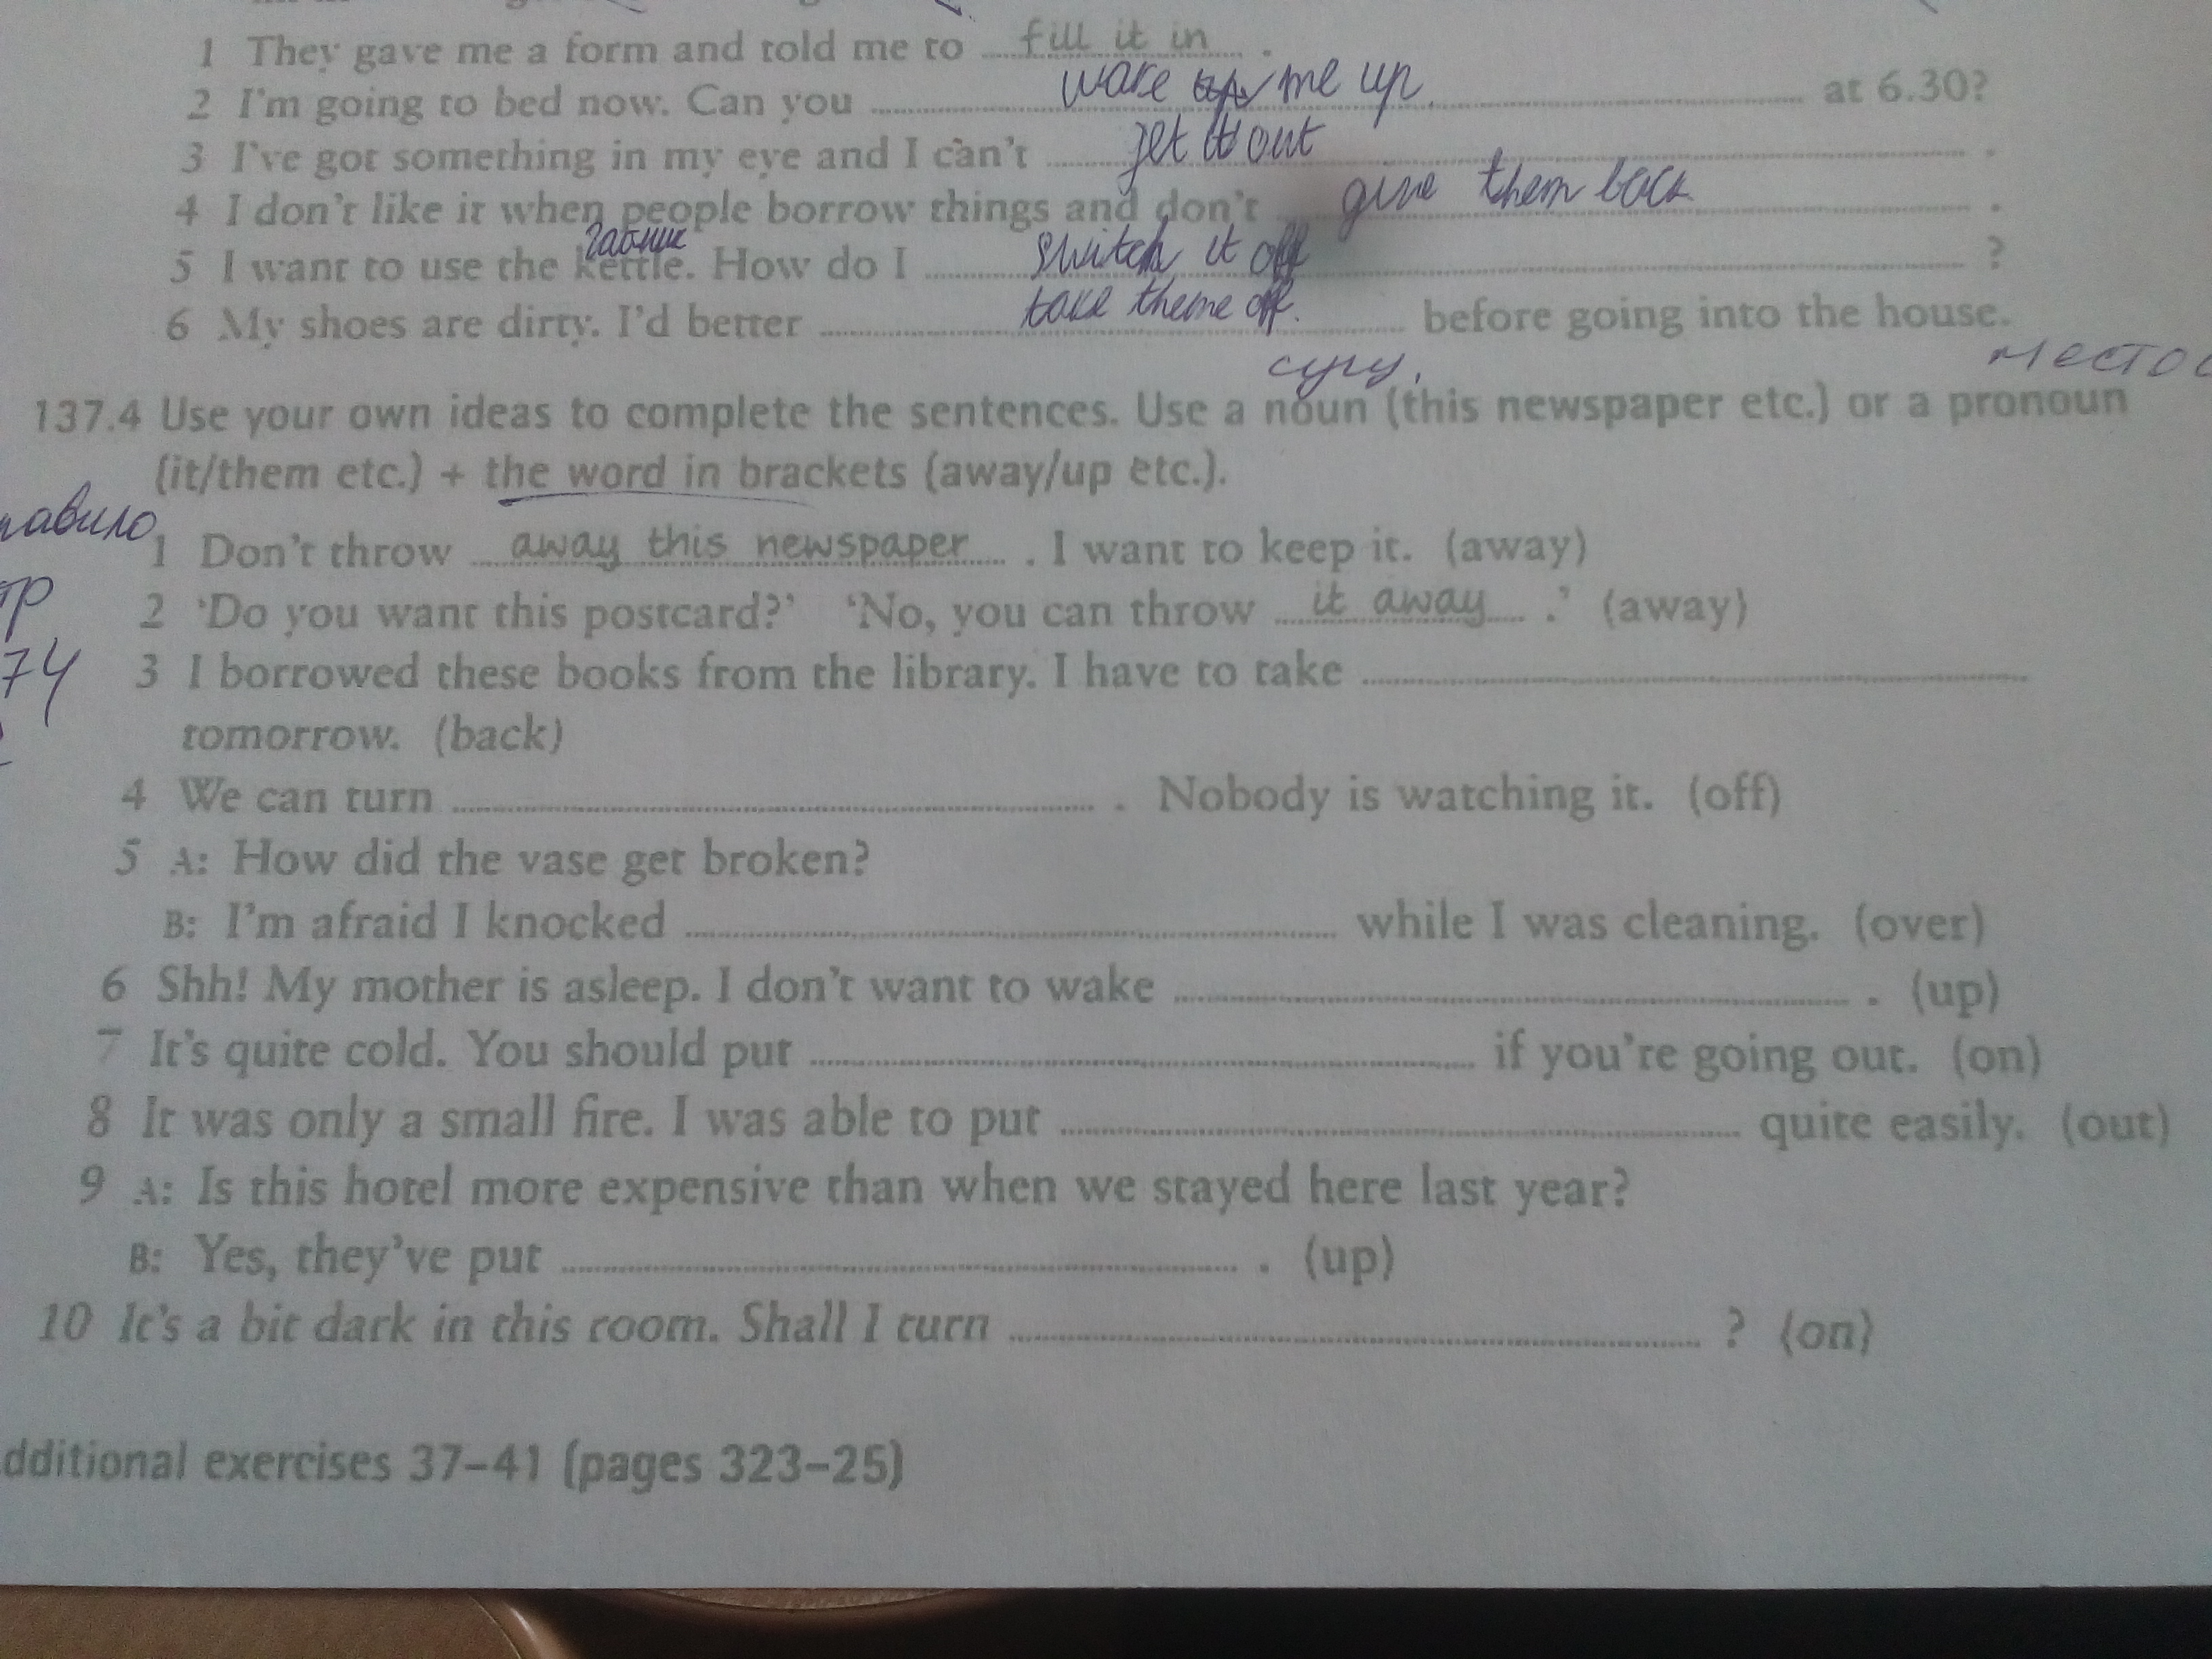 1 They gave me a form and told me to fill it in .
2 I'm going to bed now. Can you wake me up. at 6.30?
3 I've got something in my eye and I can't get it out .
4 I don't like it when people borrow things and don't give them back .
чайник
5 I want to use the kettle. How do I switch it off ?
6 My shoes are dirty. I'd better take theme off. before going into the house.
сущ. место
137.4 Use your own ideas to complete the sentences. Use a noun (this newspaper etc.) or a pronoun
(it/them etc.) + the word in brackets (away/up etc.).
1 Don't throw away this newspaper . I want to keep it. (away)
2 'Do you want this postcard?' 'No, you can throw it away .' (away)
74
3 I borrowed these books from the library. I have to take
tomorrow. (back)
4 We can turn . Nobody is watching it. (off)
5 A: How did the vase get broken?
B: I'm afraid I knocked while I was cleaning. (over)
6 Shh! My mother is asleep. I don't want to wake . (up)
7 It's quite cold. You should put if you're going out. (on)
8 It was only a small fire. I was able to put quite easily. (out)
9 A: Is this hotel more expensive than when we stayed here last year?
B: Yes, they've put . (up)
10 It's a bit dark in this room. Shall I turn ? (on)
dditional exercises 37–41 (pages 323–25)